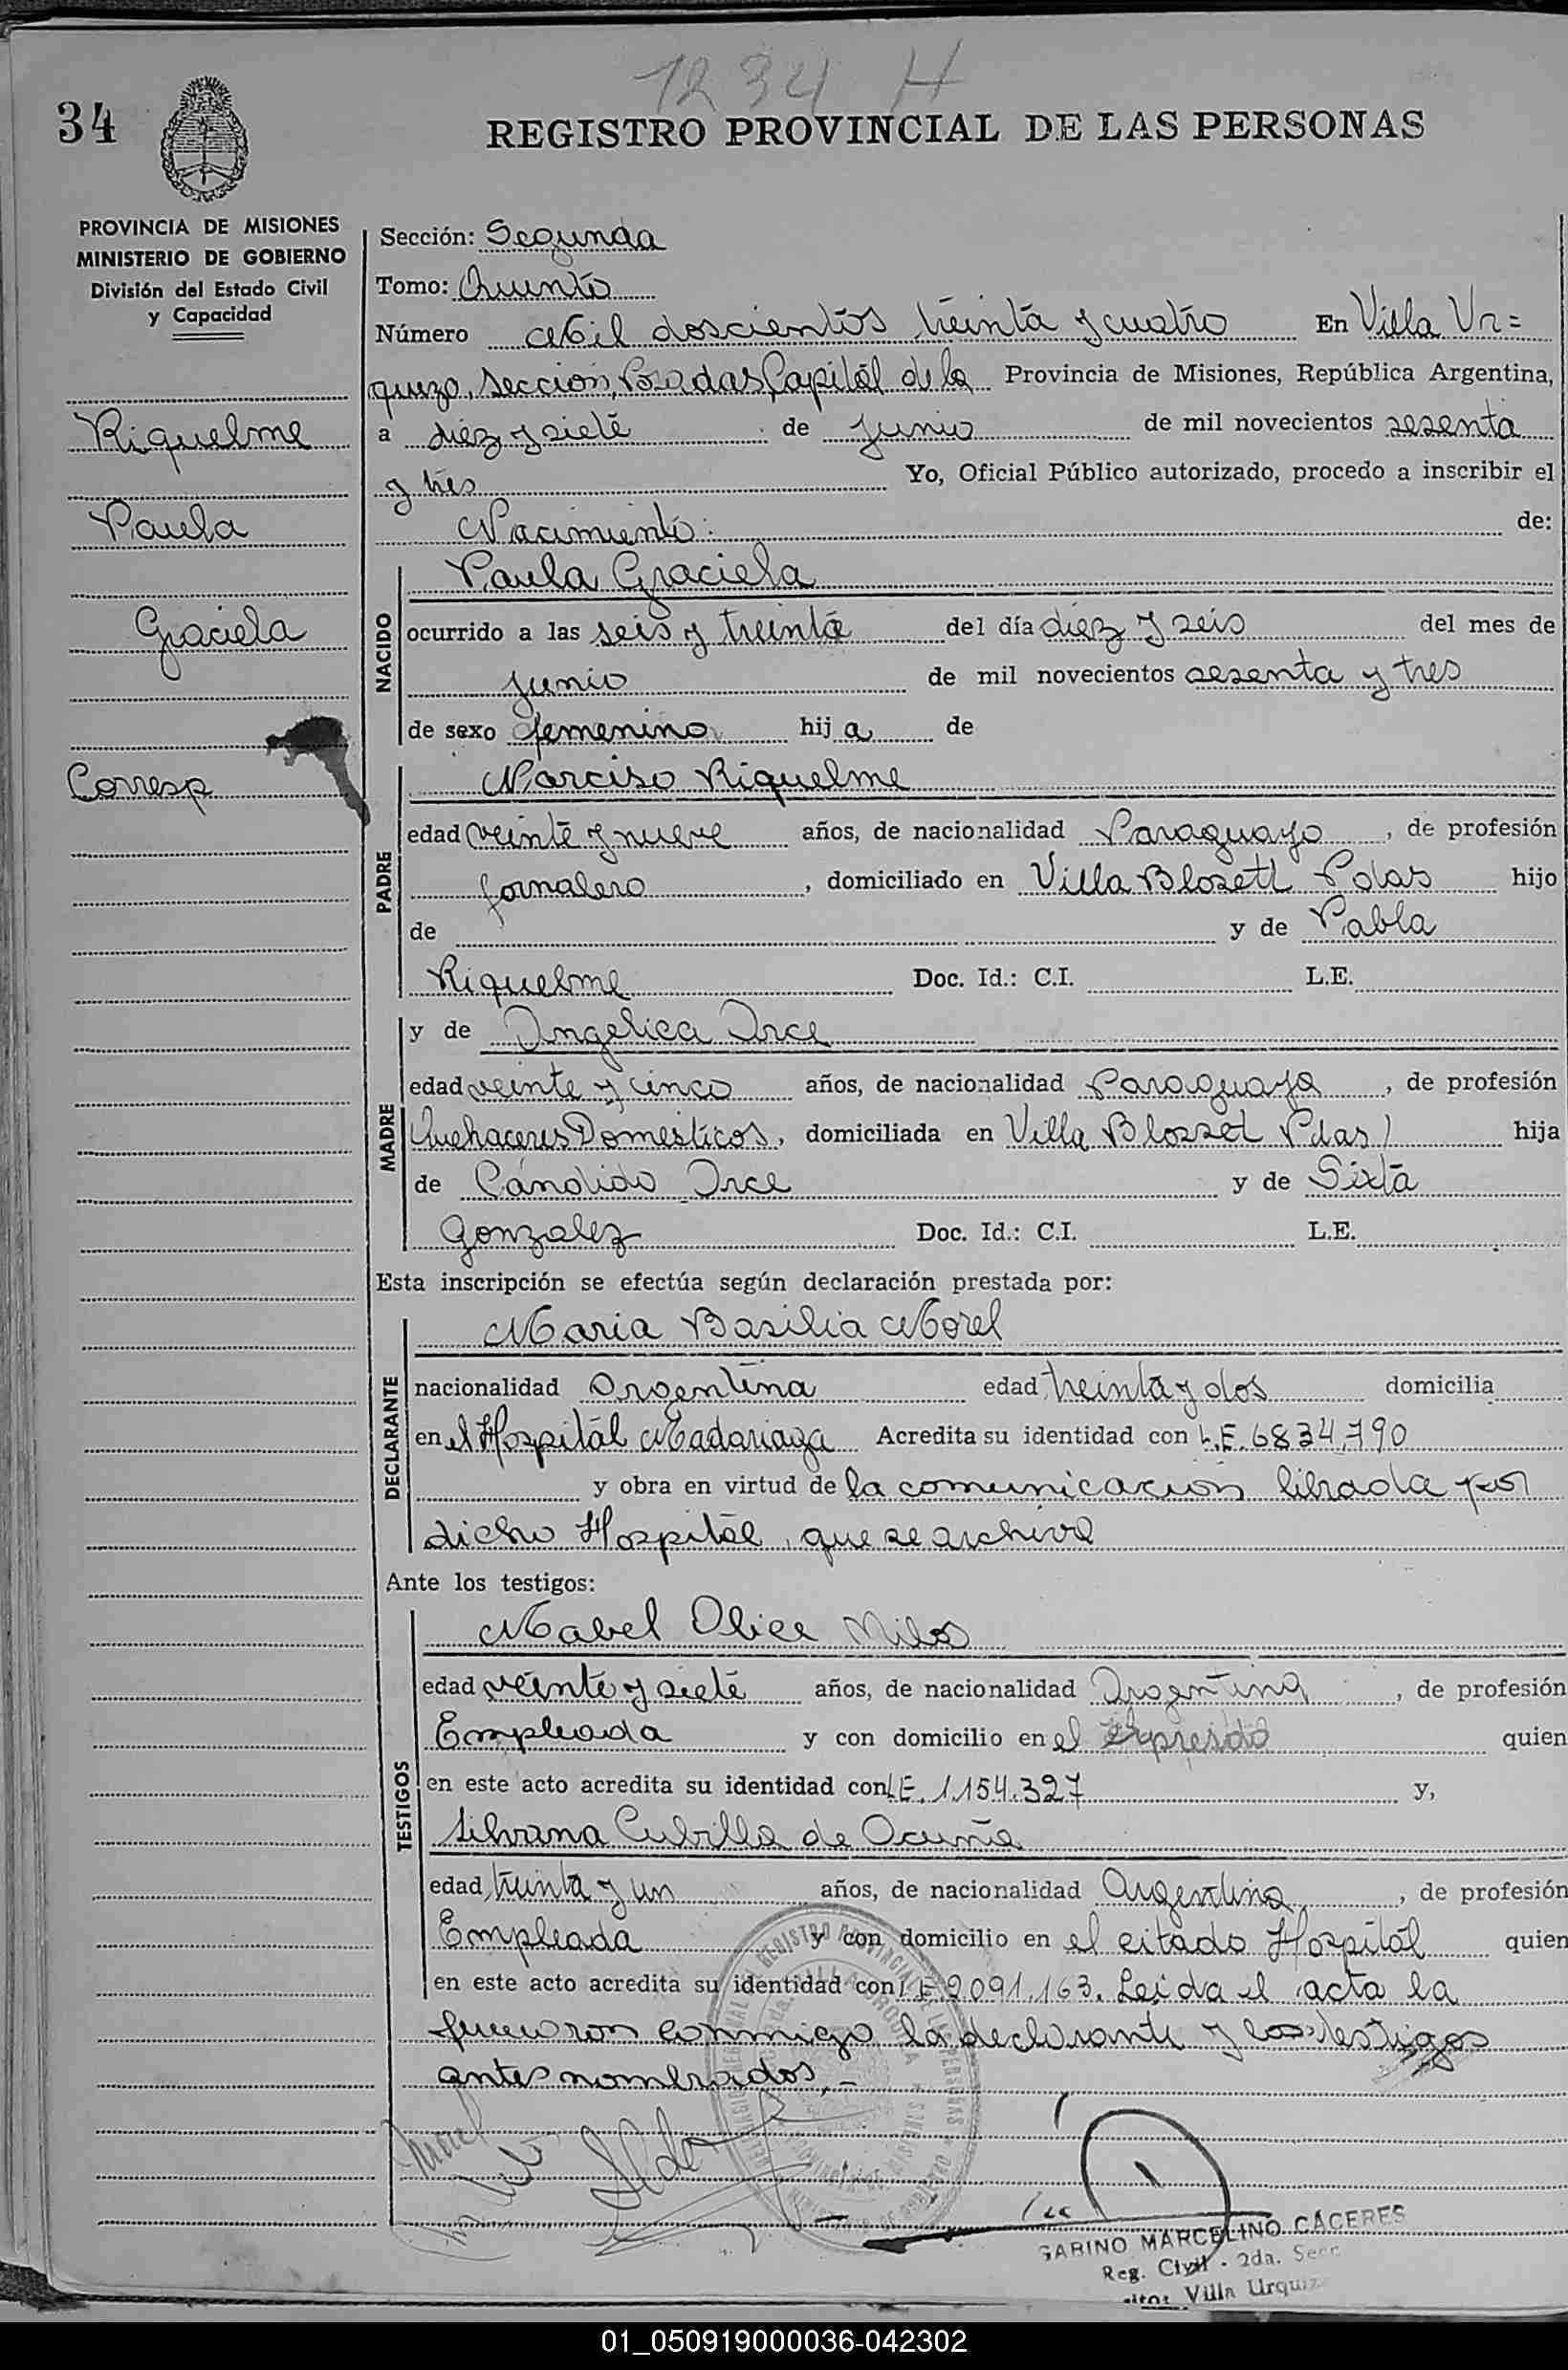 1234 H
34
REGISTRO PROVINCIAL DE LAS PERSONAS
PROVINCIA DE MISIONES
MINISTERIO DE GOBIERNO
División del Estado Civil
y Capacidad
Riquelme
Paula
Graciela
Corresp
Sección: Segunda
Tomo: Quinto
Número Mil doscientos treinta y cuatro En Villa Ur=
quiza, Sección, Posadas, Capital de la Provincia de Misiones, República Argentina,
a diez y siete de Junio de mil novecientos sesenta
y tres Yo, Oficial Público autorizado, procedo a inscribir el
Nacimiento: de:
NACIDO
Paula Graciela
ocurrido a las seis y treinta del día diez y seis del mes de
Junio de mil novecientos sesenta y tres
de sexo femenino hija de
PADRE
Narciso Riquelme
edad veinte y nueve años, de nacionalidad Paraguayo, de profesión
Jornalero, domiciliado en Villa Blosett Pdas hijo
de y de Pabla
Riquelme Doc. Id.: C.I. L.E.
MADRE
y de Angelica Arce
edad veinte y cinco años, de nacionalidad Paraguaya, de profesión
Quehaceres Domesticos, domiciliada en Villa Blosset Pdas) hija
de Cándido Arce y de Sixta
Gonzalez Doc. Id.: C.I. L.E.
Esta inscripción se efectúa según declaración prestada por:
DECLARANTE
Maria Basilia Morel
nacionalidad Argentina edad treinta y dos domicilia
en el Hospital Madariaga Acredita su identidad con L.E. 6834.790
y obra en virtud de la comunicación librada por
dicho Hospital, que se archiva
Ante los testigos:
TESTIGOS
Mabel Alice
edad veinte y siete años, de nacionalidad Argentina, de profesión
Empleada y con domicilio en el quien
en este acto acredita su identidad con L.E. 1.154.327 y,
Silvana Cubilla de Acuña
edad treinta y un años, de nacionalidad Argentina, de profesión
Empleada y con domicilio en el citado Hospital quien
en este acto acredita su identidad con L.E. 2091.163. Leida el acta la
conmigo la declarante y los testigos
antes nombrados.-
GABINO MARCELINO CACERES
Reg. Civil - 2da. Secc
Villa Urquiz
01_050919000036-042302